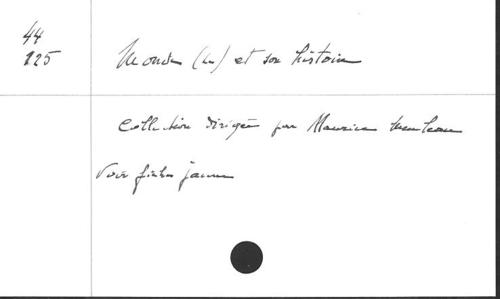 44
225
Monde (Le) et son histoire
Collection dirigée par Maurice Meuleau
Voir fiches jaunes